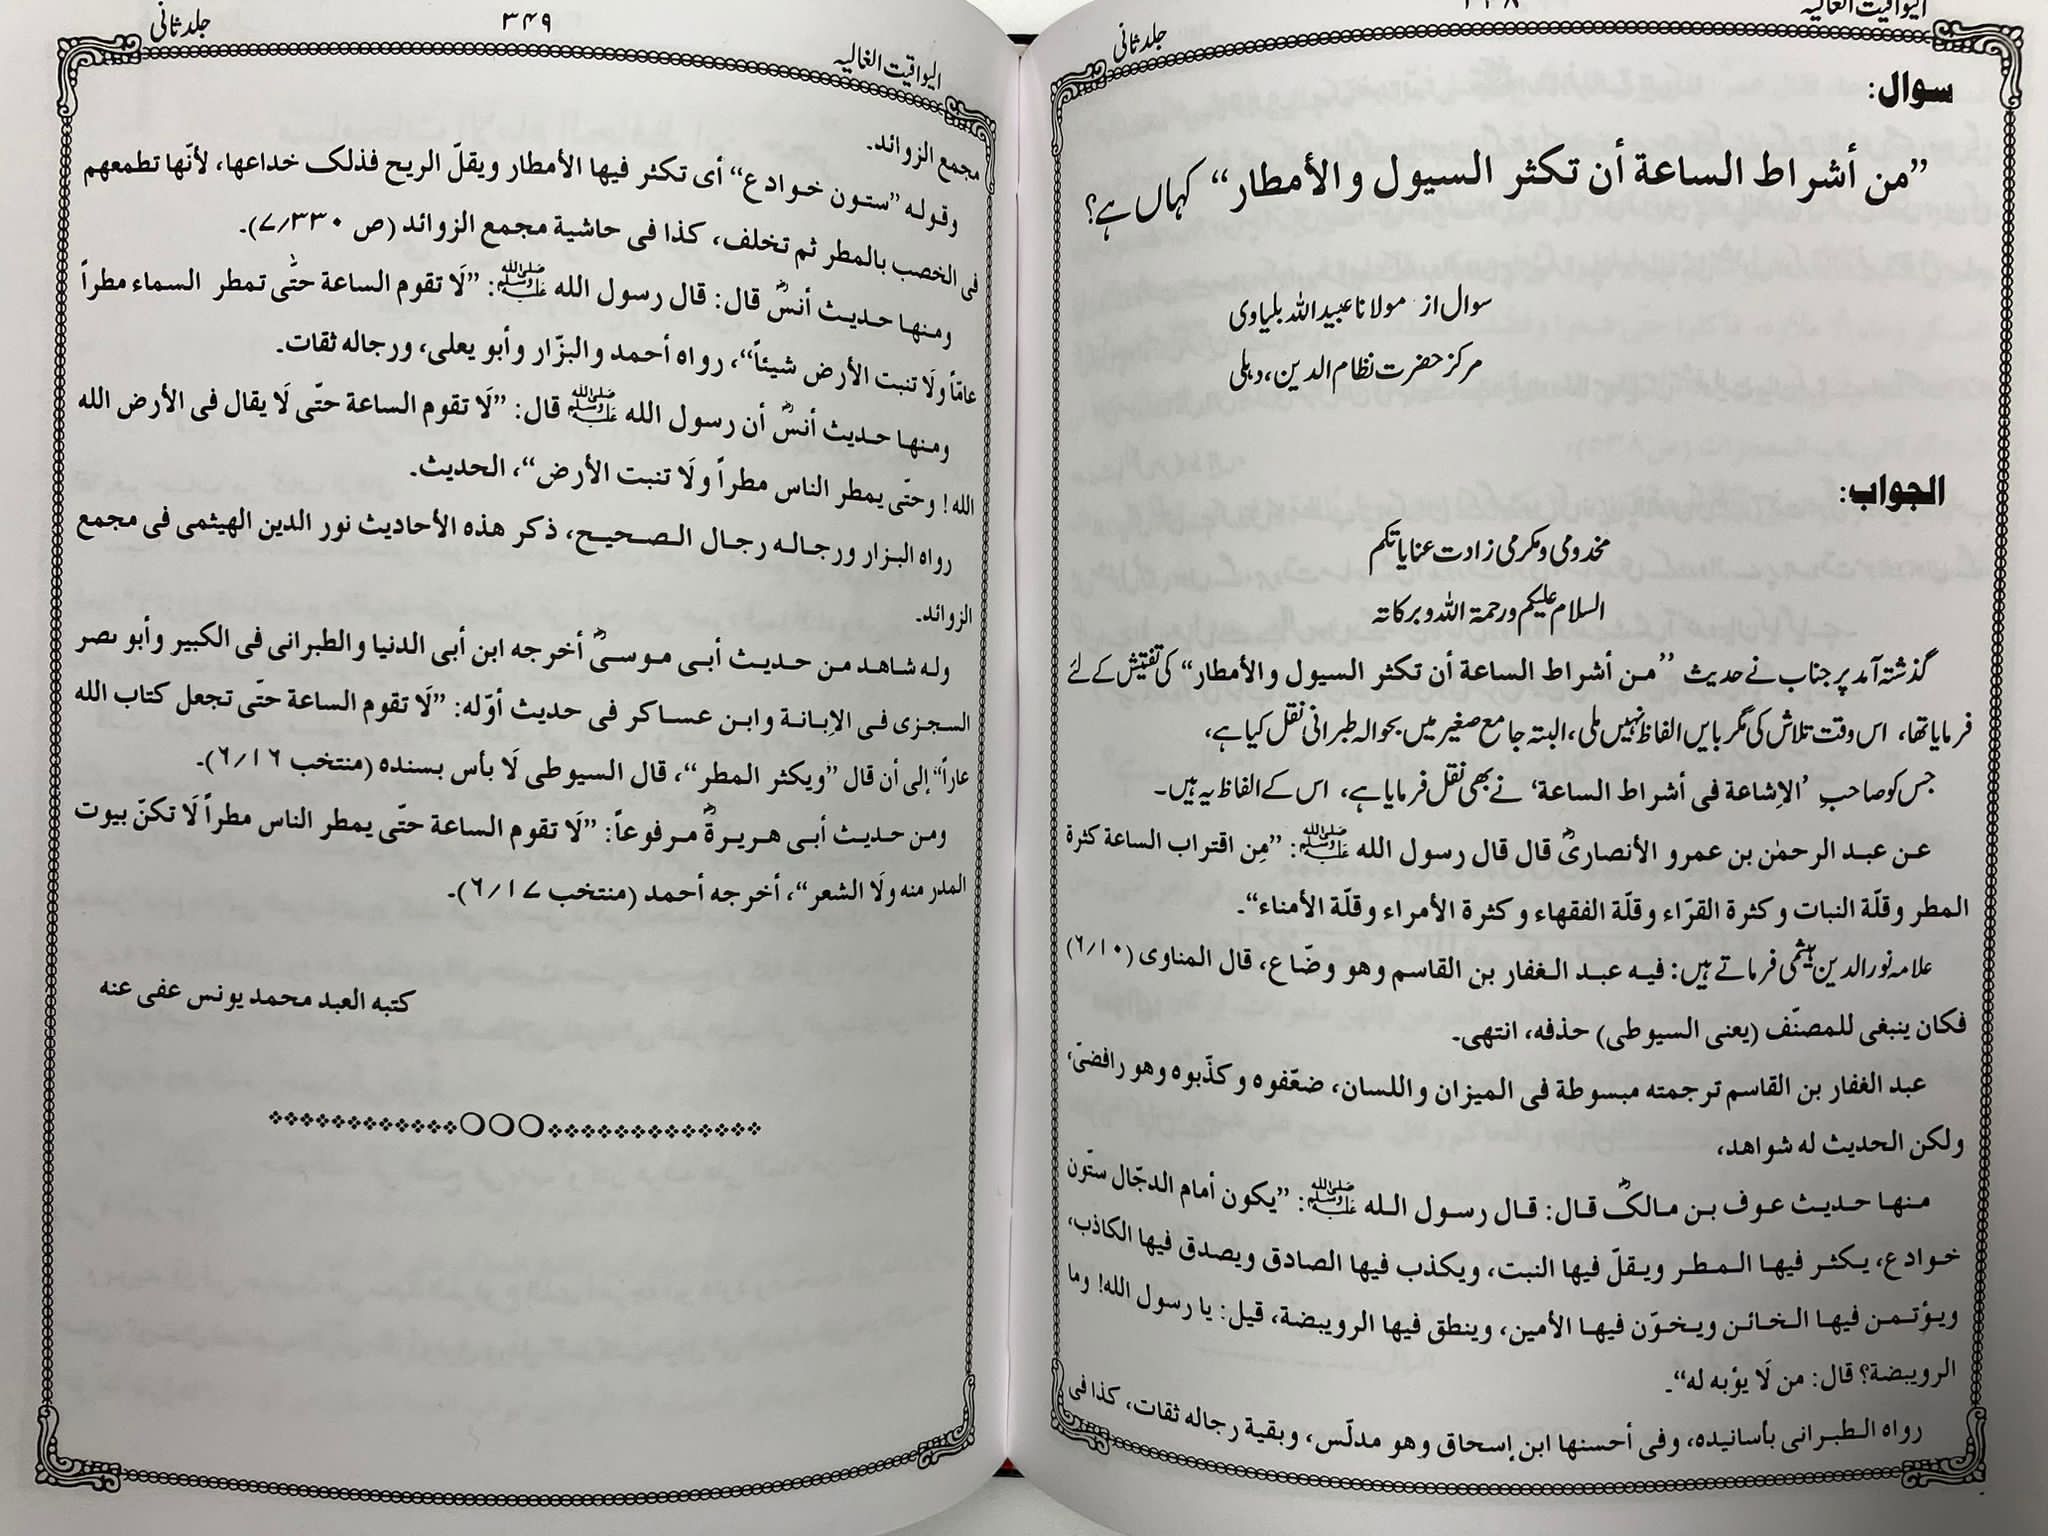 اليواقيت الغاليه
جلد ثانی
سوال:
”من أشراط الساعة أن تكثر السيول والأمطار“ کہاں ہے؟
سوال از مولانا عبید اللہ بلیاوی
مرکز حضرت نظام الدین، دہلی
الجواب:
مخدومی ومکرمی زادت عنایاتکم
السلام علیکم ورحمۃ اللہ وبرکاتہ
گذشتہ آمد پر جناب نے حدیث ”من أشراط الساعة أن تكثر السيول والأمطار“ کی تفتیش کے لئے
فرمایا تھا، اس وقت تلاش کی مگر بایں الفاظ نہیں ملی، البتہ جامع صغیر میں بحوالہ طبرانی نقل کیا ہے،
جس کو صاحبِ ’الإشاعة فى أشراط الساعة‘ نے بھی نقل فرمایا ہے، اس کے الفاظ یہ ہیں۔
عن عبد الرحمٰن بن عمرو الأنصاریؓ قال قال رسول الله ﷺ: ”مِن اقتراب الساعة كثرة
المطر وقلّة النبات وكثرة القرّاء وقلّة الفقهاء وكثرة الأمراء وقلة الأمناء“۔
علامہ نور الدین ہیثمی فرماتے ہیں: فيه عبد الغفار بن القاسم وهو وضّاع، قال المناوى (۶/۱۰)
فكان ينبغى للمصنّف (يعنى السيوطى) حذفه، انتهى۔
عبد الغفار بن القاسم ترجمته مبسوطة فى الميزان واللسان، ضعّفوه وكذّبوه وهو رافضىّ،
ولكن الحديث له شواهد،
منها حديث عوف بن مالکؓ قال: قال رسول الله ﷺ: ”يكون أمام الدجّال ستّون
خوادع، يكثر فيها المطر ويقلّ فيها النبت، ويكذب فيها الصادق ويصدق فيها الكاذب،
ويؤتمن فيها الخائن ويخوّن فيها الأمين، وينطق فيها الرويبضة، قيل: يا رسول الله! وما
الرويبضة؟ قال: من لَا يؤبه له“۔
رواه الطبرانى بأسانيده، وفى أحسنها ابن إسحاق وهو مدلّس، وبقية رجاله ثقات، كذا فى
اليواقيت الغاليه
۳۴۹
جلد ثانی
مجمع الزوائد۔
وقوله ”ستون خوادع“ أى تكثر فيها الأمطار ويقلّ الريح فذلک خداعها، لأنّها تطمعهم
فى الخصب بالمطر ثم تخلف، كذا فى حاشية مجمع الزوائد (ص ۷/۳۳۰)۔
ومنها حديث أنسؓ قال: قال رسول الله ﷺ: ”لَا تقوم الساعة حتّٰى تمطر السماء مطراً
عامّاً ولَا تنبت الأرض شيئاً“، رواه أحمد والبزّار وأبو يعلى، ورجاله ثقات۔
ومنها حديث أنسؓ أن رسول الله ﷺ قال: ”لَا تقوم الساعة حتّى لَا يقال فى الأرض الله
الله! وحتّى يمطر الناس مطراً ولَا تنبت الأرض“، الحديث۔
رواه البزار ورجاله رجال الصحيح، ذكر هذه الأحاديث نور الدين الهيثمى فى مجمع
الزوائد۔
وله شاهد من حديث أبى موسىؓ أخرجه ابن أبى الدنيا والطبرانى فى الكبير وأبو نصر
السجزى فى الإبانة وابن عساكر فى حديث أوّله: ”لَا تقوم الساعة حتّى تجعل كتاب الله
عاراً“ إلى أن قال ”ويكثر المطر“، قال السيوطى لَا بأس بسنده (منتخب ۶/۱۶)۔
ومن حديث أبى هريرةؓ مرفوعاً: ”لَا تقوم الساعة حتّى يمطر الناس مطراً لَا تكنّ بيوت
المدر منه ولَا الشعر“، أخرجه أحمد (منتخب ۶/۱۷)۔
كتبه العبد محمد يونس عفى عنه